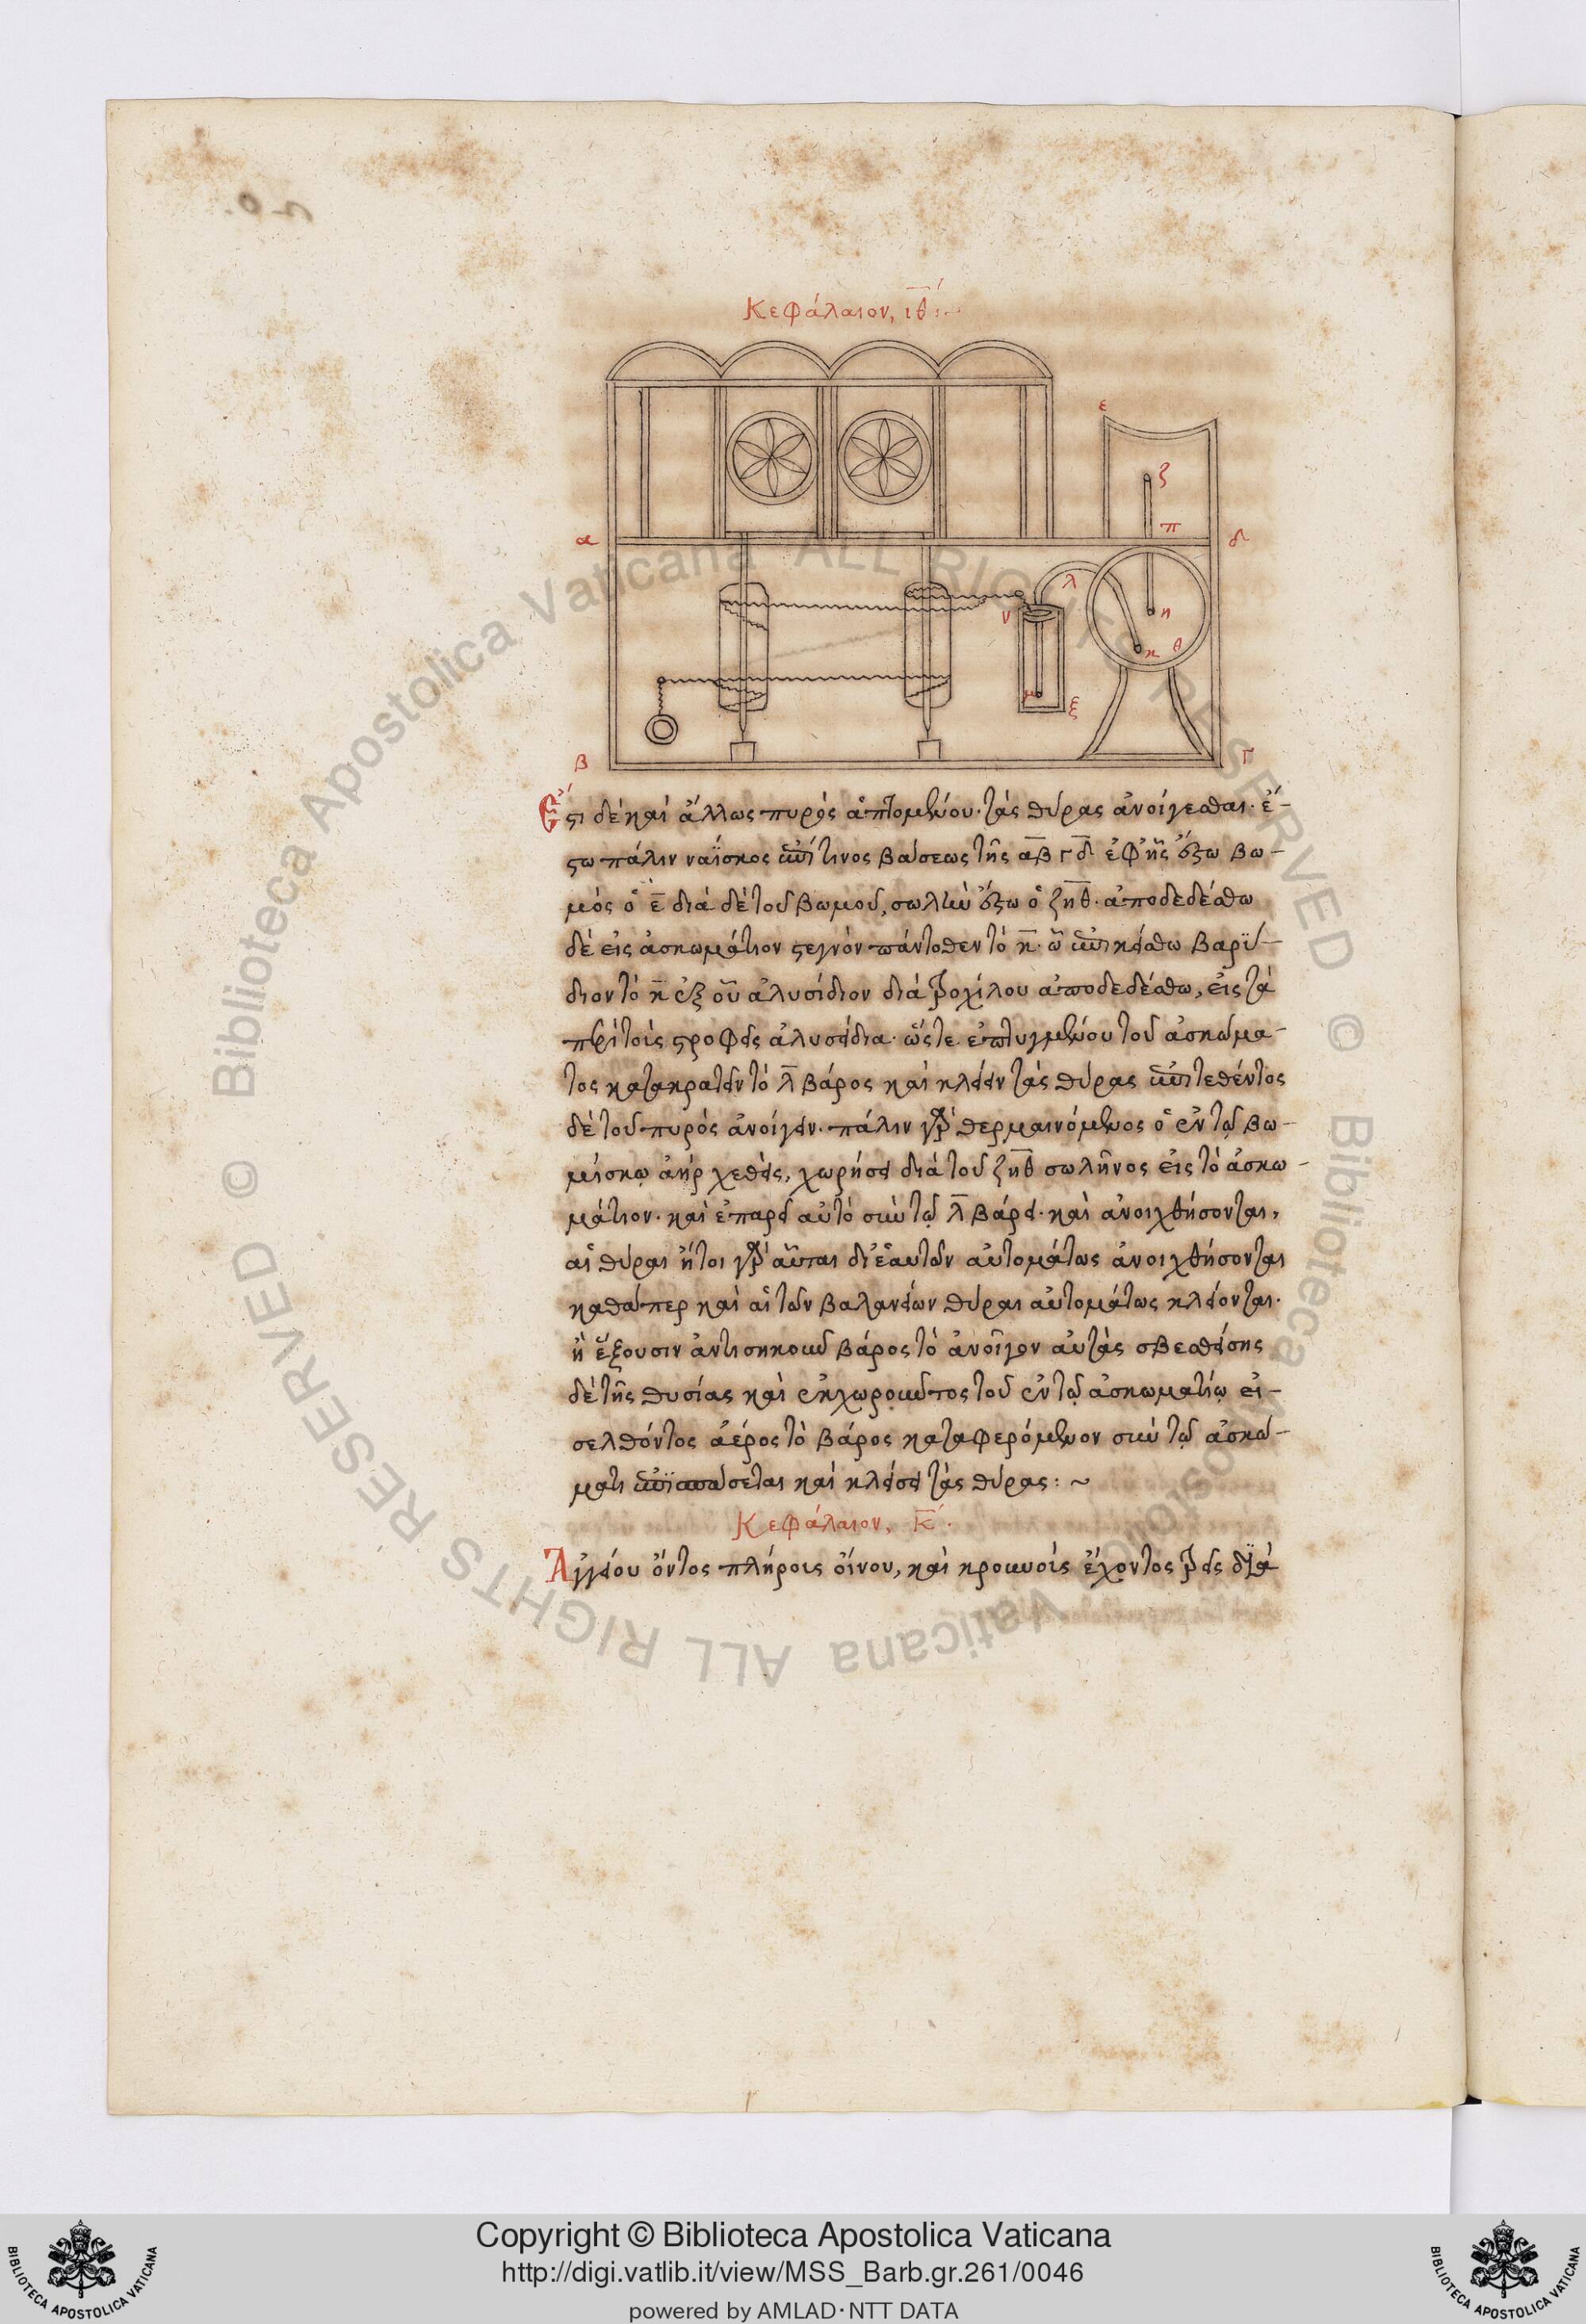 Κεφάλαιον, ιθ΄:~
ε
ζ
π
α
δ
λ
ν
η
κ θ
μ
ξ
β
Γ
Ἔστι δὲ καὶ ἄλλως πυρὸς ἁπτομένου. τὰς θύρας ἀνοίγεσθαι. ἔ-
στω πάλιν ναΐσκος ἐπί τινος βάσεως τῆς αβγδ ἐφ' ἧς ἔστω βω-
μὸς ὁ ε διὰ δὲ τοῦ βωμοῦ, σωλὴν ἔστω ὁ ζηθ. ἀποδεδέσθω
δὲ εἰς ἀσκωμάτιον στεγνὸν πάντοθεν τὸ κ. ᾧ ἐπικείσθω βαρύλ-
διον τὸ κ ἐξ οὗ ἁλυσίδιον διὰ τροχίλου ἀποδεδέσθω, εἰς τὰ
περὶ τοὺς στροφεῖς ἁλυσείδια. ὥστε ἐπτυγμένου τοῦ ἀσκώμα-
τος κατακρατεῖν τὸ λ βάρος καὶ κλείειν τὰς θύρας ἐπιτεθέντος
δὲ τοῦ πυρὸς ἀνοίγειν. πάλιν γὰρ θερμαινόμενος ὁ ἐν τῷ βω-
μίσκῳ ἀὴρ χεθεὶς, χωρήσει διὰ τοῦ ζηθ σωλῆνος εἰς τὸ ἀσκω-
μάτιον. καὶ ἐπαρεῖ αὐτὸ σὺν τῷ λ βάρει. καὶ ἀνοιχθήσονται,
αἱ θύραι ἤτοι γὰρ αὗται δι' ἑαυτῶν αὐτομάτως ἀνοιχθήσονται
καθάπερ καὶ αἱ τῶν βαλανείων θύραι αὐτομάτως κλείονται.
ἢ ἕξουσιν ἀντισηκοῦν βάρος τὸ ἀνοῖγον αὐτὰς σβεσθείσης
δὲ τῆς θυσίας καὶ ἐκχωροῦντος τοῦ ἐν τῷ ἀσκωματίῳ εἰ-
σελθόντος ἀέρος τὸ βάρος καταφερόμενον σὺν τῷ ἀσκώ-
ματι ἐπισπάσεται καὶ κλείσει τὰς θύρας: ~
Κεφάλαιον, Κ΄.
Ἀγγείου ὄντος πλήρους οἴνου, καὶ κρουνοὺς ἔχοντος τρεῖς διὰ
Copyright © Biblioteca Apostolica Vaticana
http://digi.vatlib.it/view/MSS_Barb.gr.261/0046
powered by AMLAD·NTT DATA